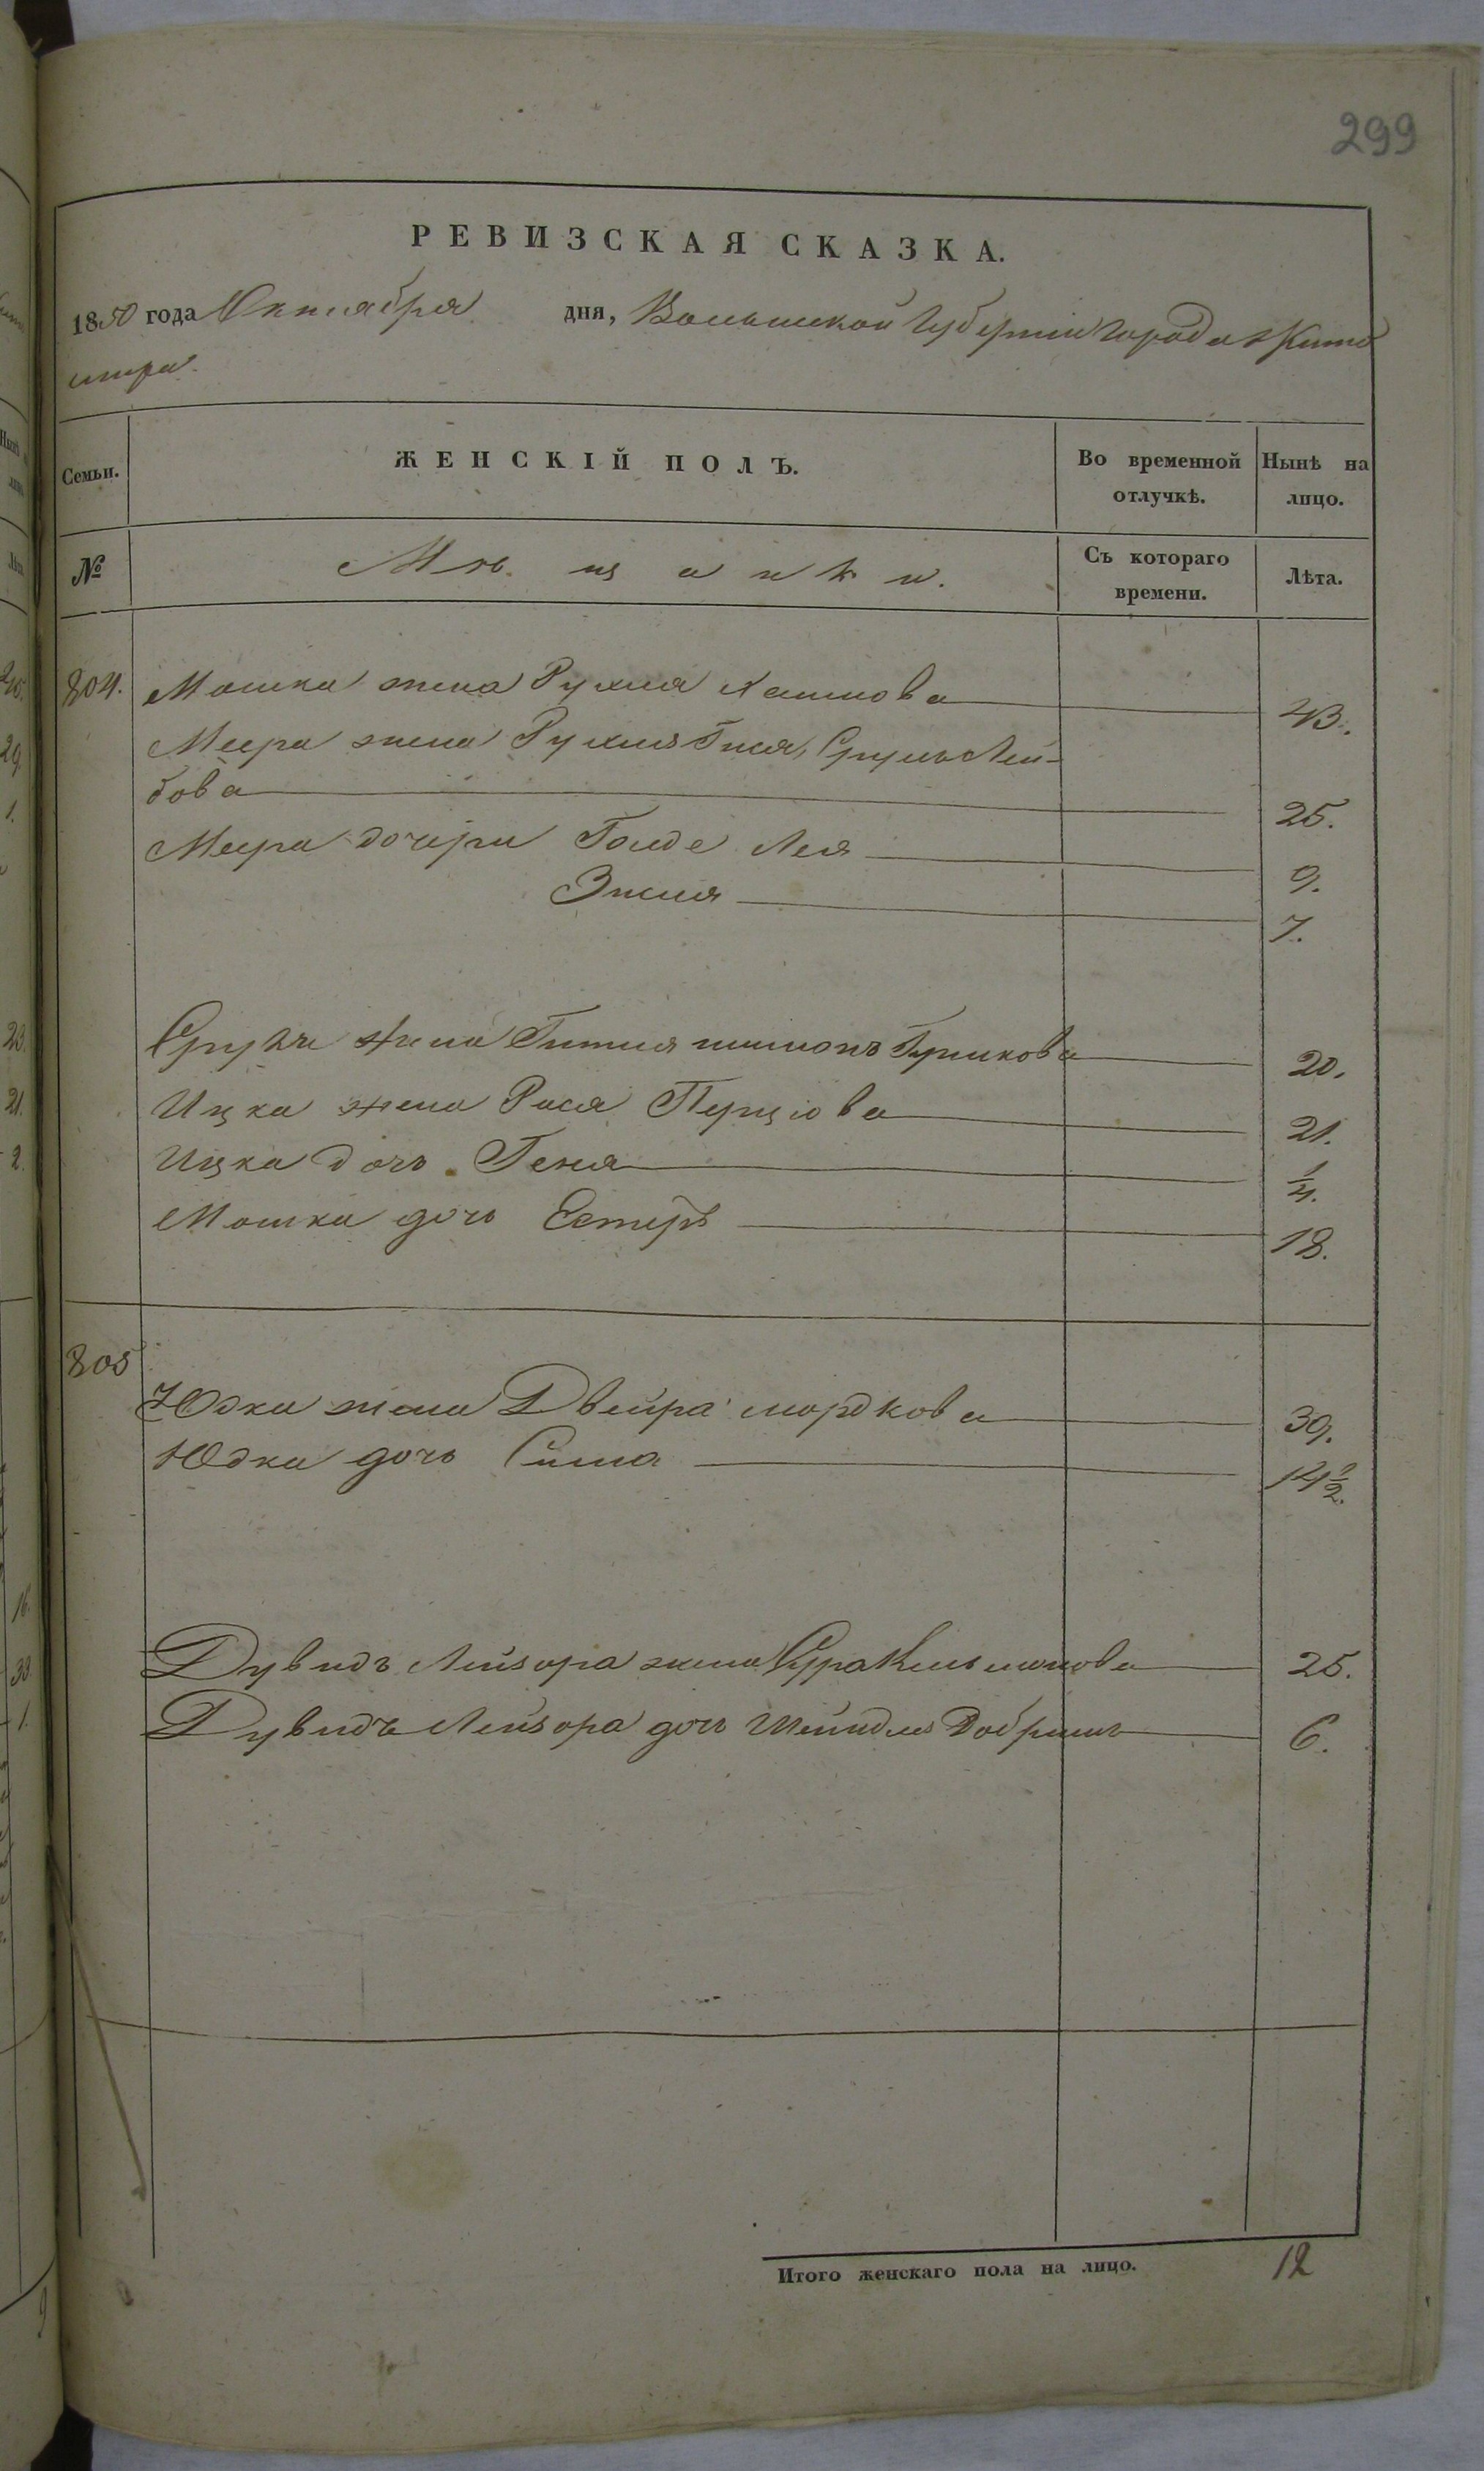 299
РЕВИЗСКАЯ СКАЗКА.
1850 года Октября дня, Волынской Губернии Города Жито
мира.
Семьи. ЖЕНСКІЙ ПОЛЪ. Во временной отлучкѣ. Нынѣ на лицо.
№ Мѣщанки. Съ котораго времени. Лѣта.
804. Мошка жена Рухля Хаимова 43.
Меера жена Рухля Гися, Сруль Лей-
бова 25.
Меера дочери Голде Лея 9.
Энися 7.
Сруля жена Гитля Гершкова 20.
Ицка жена Рася Перцова 21.
Ицка дочь Геня 1/4.
Мошка дочь Естеръ 18.
805
Юдка жена Двейра мордкова 39.
Юдка дочь Сима 14 1/2.
Дувидъ Лейзора жена Сура Кельманова 25.
Дувидъ Лейзора дочь Шейндля Добришъ 6.
Итого женскаго пола на лицо. 12